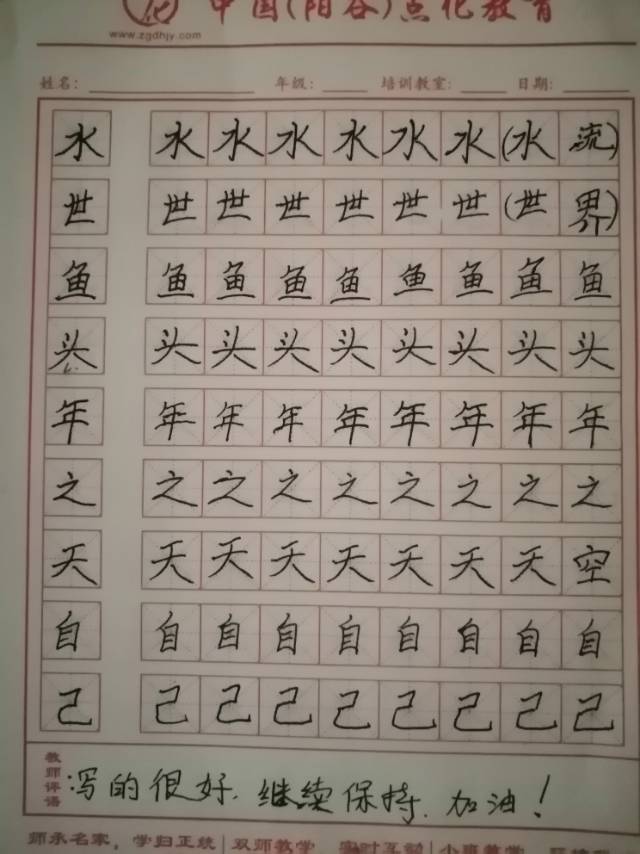 中国(阳谷)点化教育
www.zgdhjy.com
姓名: 年级: 培训教室: 日期:
水 水 水 水 水 水 水 (水 流)
世 世 世 世 世 世 世 (世 界)
鱼 鱼 鱼 鱼 鱼 鱼 鱼 鱼 鱼
头 头 头 头 头 头 头 头 头
年 年 年 年 年 年 年 年 年
之 之 之 之 之 之 之 之 之
天 天 天 天 天 天 天 天 空
自 自 自 自 自 自 自 自 自
己 己 己 己 己 己 己 己 己
教师评语 写的很好.继续保持.加油!
师承名家，学归正统|双师教学 实时互动|小班教学